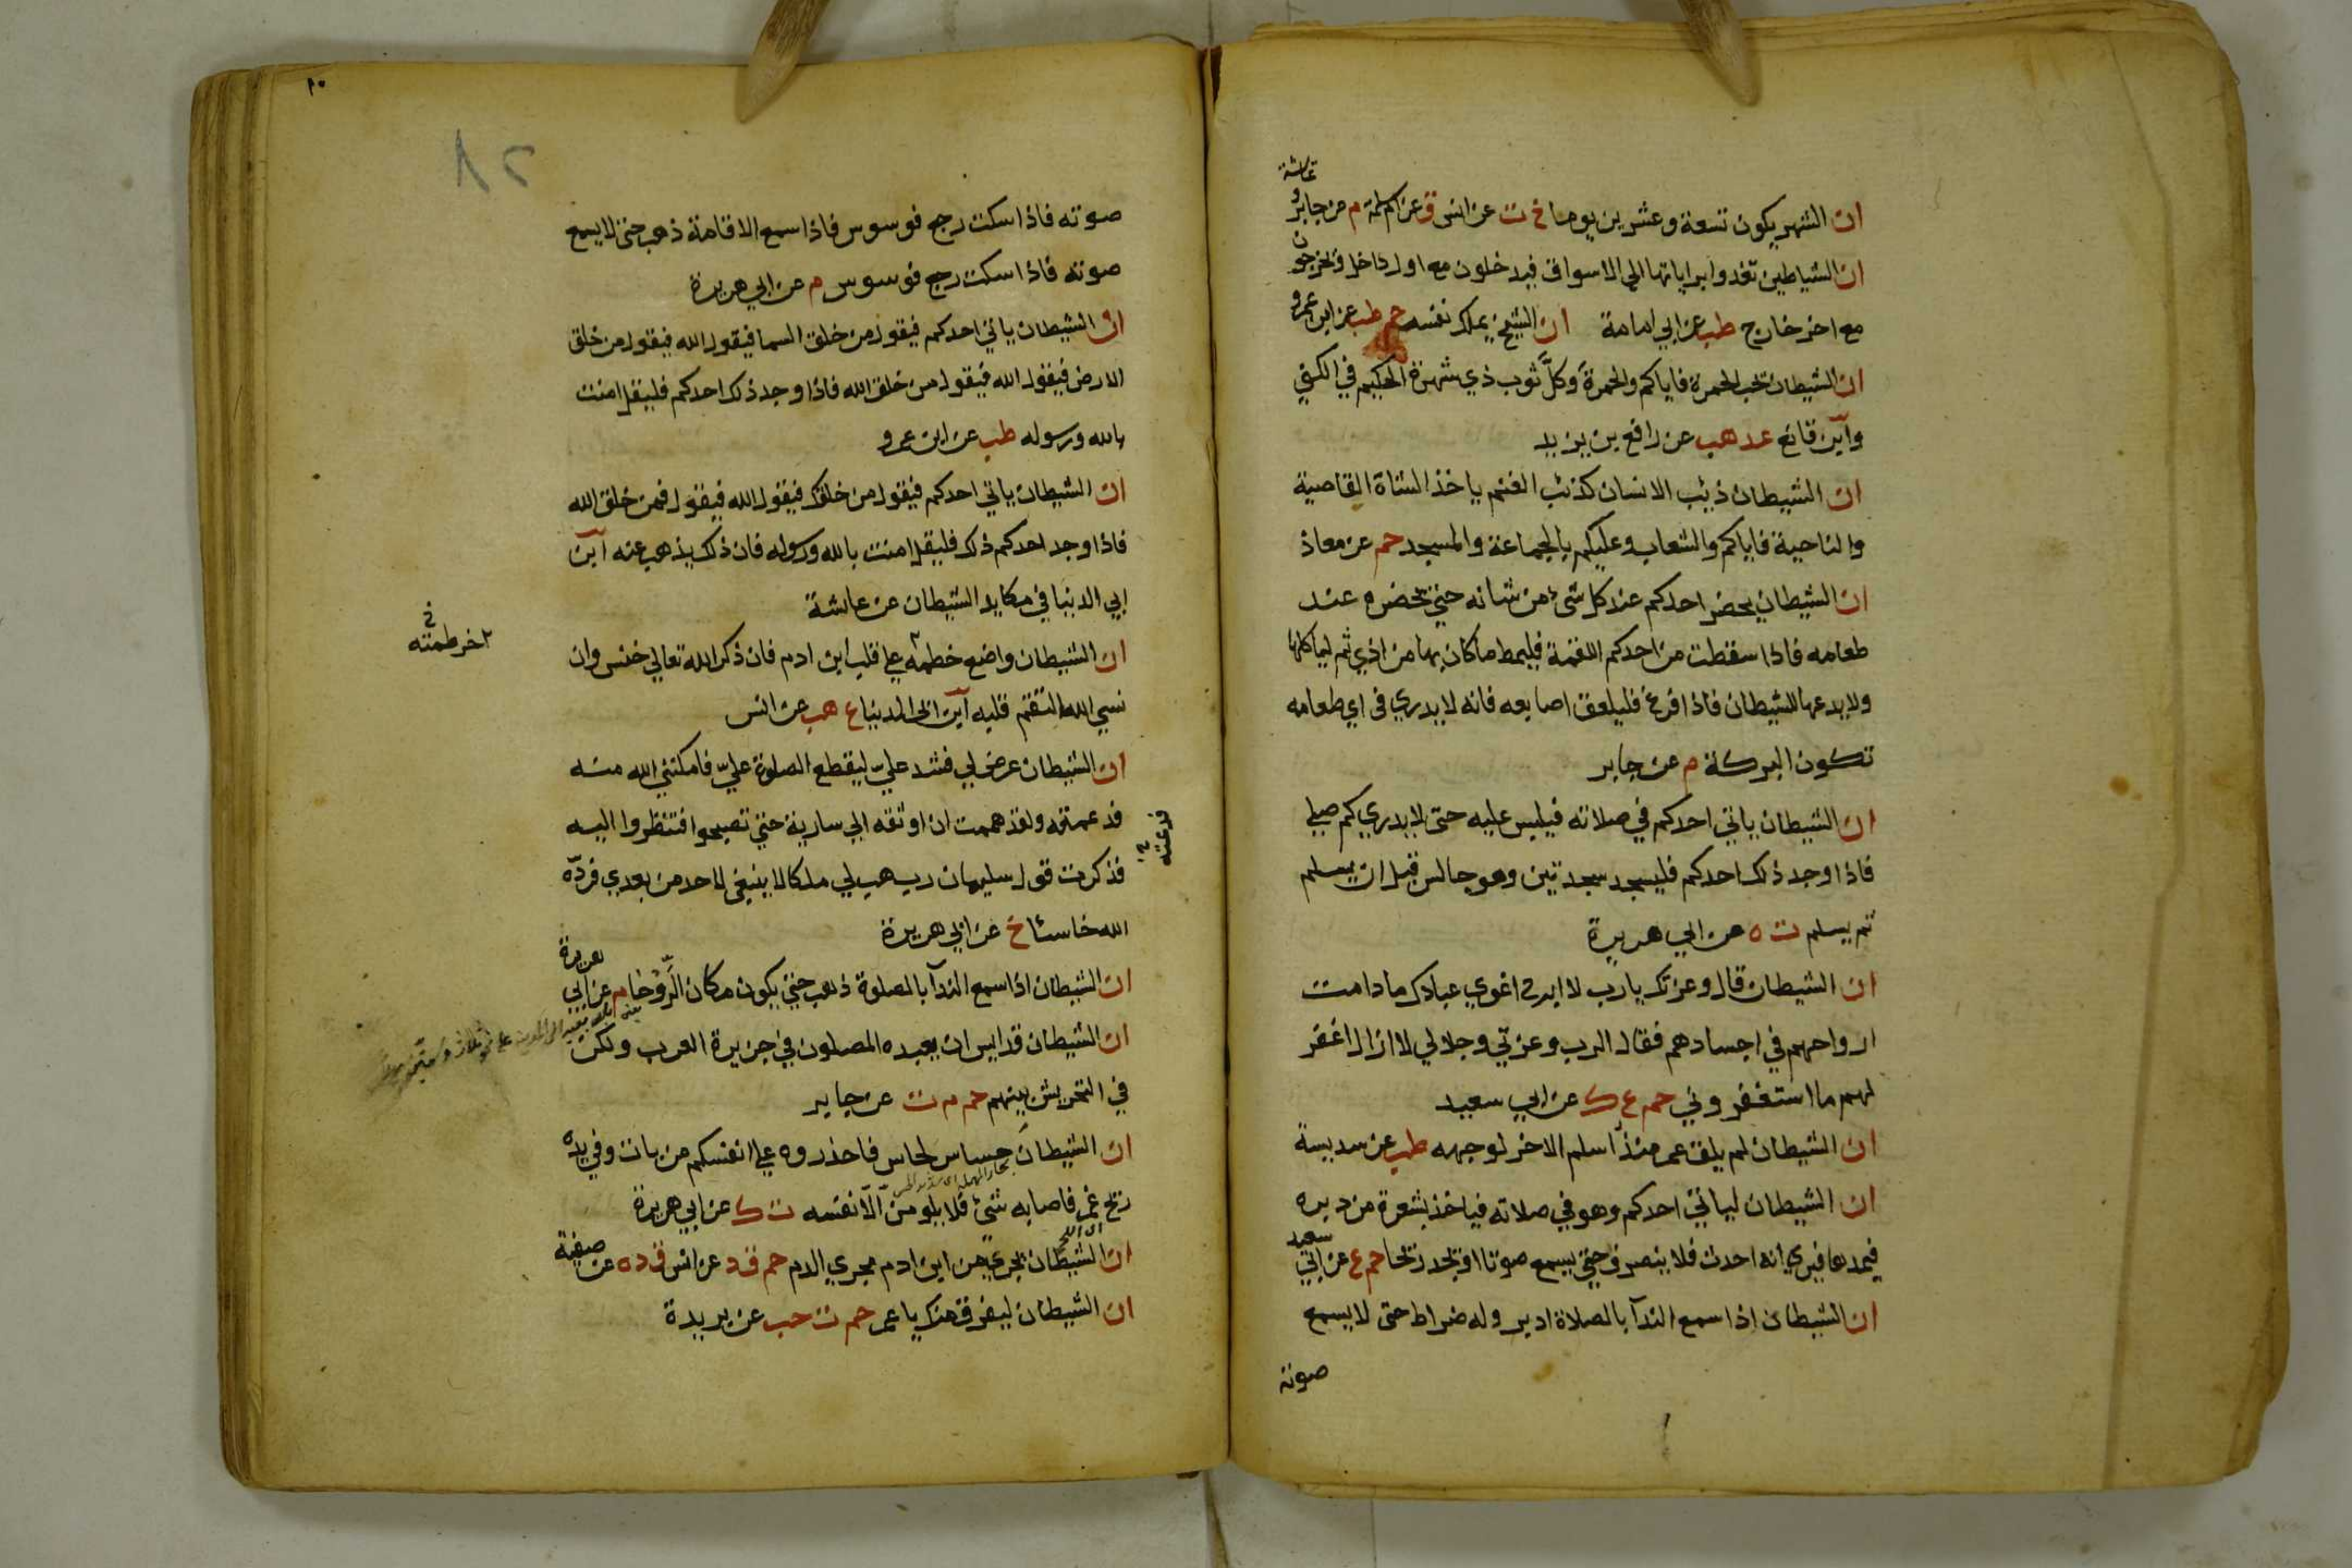 عائشة
ان الشهر يكون تسعة وعشرين يوما خ ت عن انس ق عن ام سلمة م عن جابر و
ان الشياطين تغدوا براياتها الى الاسواق فيدخلون مع اول داخل ويخرجون
مع اخر خارج طب عن ابي امامة ان الشيخ يملك نفسه حم طب عن ابن عمرو
ان الشيطان يحب الحمرة فاياكم والحمرة وكل ثوب ذي شهرة الحكيم في الكنى
وابن قانع عد هب عن رافع بن يزيد
ان الشيطان ذئب الانسان كذئب الغنم ياخذ الشاة القاصية
والناحية فاياكم والشعاب وعليكم بالجماعة والمسجد حم عن معاذ
ان الشيطان يحضر احدكم عند كل شيء من شانه حتى يحضره عند
طعامه فاذا سقطت من احدكم اللقمة فليمط ما كان بها من اذي ثم لياكلها
ولا يدعها للشيطان فاذا فرغ فليلعق اصابعه فانه لا يدري في اي طعامه
تكون البركة م عن جابر
ان الشيطان ياتي احدكم في صلاته فيلبس عليه حتى لا يدري كم صلى
فاذا وجد ذلك احدكم فليسجد سجدتين وهو جالس قبل ان يسلم
ثم يسلم ت ه عن ابي هريرة
ان الشيطان قال وعزتك يارب لا ابرح اغوي عبادك مادامت
ارواحهم في اجسادهم فقال الرب وعزتي وجلالي لا ازال اغفر
لهم ما استغفروني حم ع ك عن ابي سعيد
ان الشيطان لم يلق عمر منذ اسلم الا خر لوجهه طب عن سديسة
ان الشيطان لياتي احدكم وهو في صلاته فياخذ بشعرة من دبره
فيمدها فيرى انه احدث فلا ينصرف حتى يسمع صوتا او يجد ريحا حم ع عن ابي سعيد
ان الشيطان اذا سمع الندآ بالصلاة ادبر وله ضراط حتى لا يسمع
صوته
٨٢
صوته فاذا سكت رجع فوسوس فاذا سمع الاقامة ذهب حتى لا يسمع
صوته فاذا سكت رجع فوسوس م عن ابي هريرة
ان الشيطان ياتي احدكم فيقول من خلق السما فيقول الله فيقول من خلق
الارض فيقول الله فيقول من خلق الله فاذا وجد ذلك احدكم فليقل امنت
بالله ورسوله طب عن ابن عمرو
ان الشيطان ياتي احدكم فيقول من خلقك فيقول الله فيقول فمن خلق الله
فاذا وجد احدكم ذلك فليقل امنت بالله ورسوله فان ذلك يذهب عنه ابن
ابي الدنيا في مكايد الشيطان عن عائشة
ان الشيطان واضع خطمه على قلب ابن ادم فان ذكر الله تعالى خنس وان
خرطمته خ
نسي الله التقم قلبه ابن ابي الدنيا ع هب عن انس
ان الشيطان عرض لي فشد علي ليقطع الصلوة علي فامكنني الله منه
فدعمته ولقد هممت ان اوثقه الى سارية حتى تصبحوا فتنظروا اليه
فدعته
فذكرت قول سليمان رب هب لي ملكا لا ينبغي لاحد من بعدي فرده
الله خاسئا خ عن ابي هريرة
ان الشيطان اذا سمع الندآ بالصلوة ذهب حتى يكون مكان الروحا م عن ابي هريرة
ان الشيطان قد ايس ان يعبده المصلون في جزيرة العرب ولكن
في التحريش بينهم حم م ت عن جابر
ان الشيطان حساس لحاس فاحذروه على انفسكم من بات وفي يده
ريح غمر فاصابه شئ فلا يلومن الا نفسه ت ك عن ابي هريرة
ان الشيطان يجري من ابن ادم مجرى الدم حم ق د عن انس ق د ه عن صفية
ان الشيطان ليفرق منك يا عمر حم ت حب عن بريدة